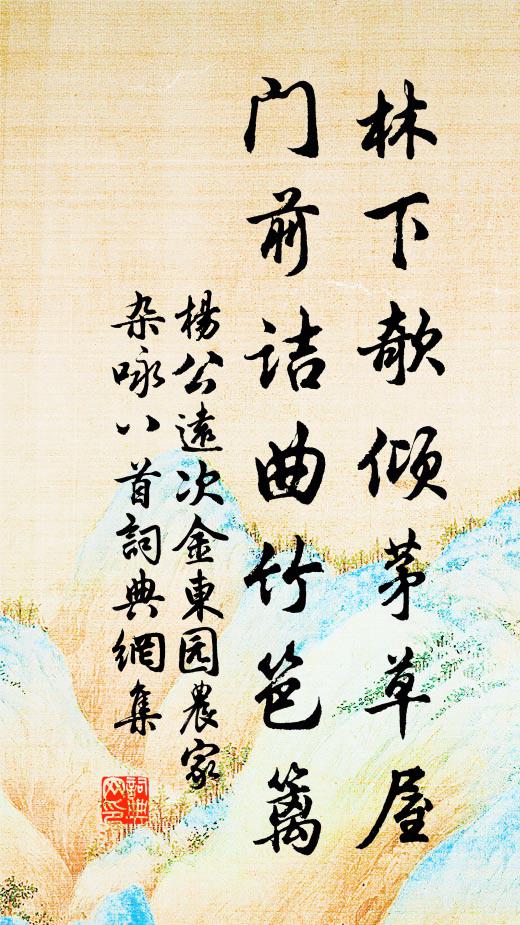 林下欹倾茅草屋
门前诘曲竹笆篱
楊公遠次金東园農家
杂咏八首詞典網集
詞典网印